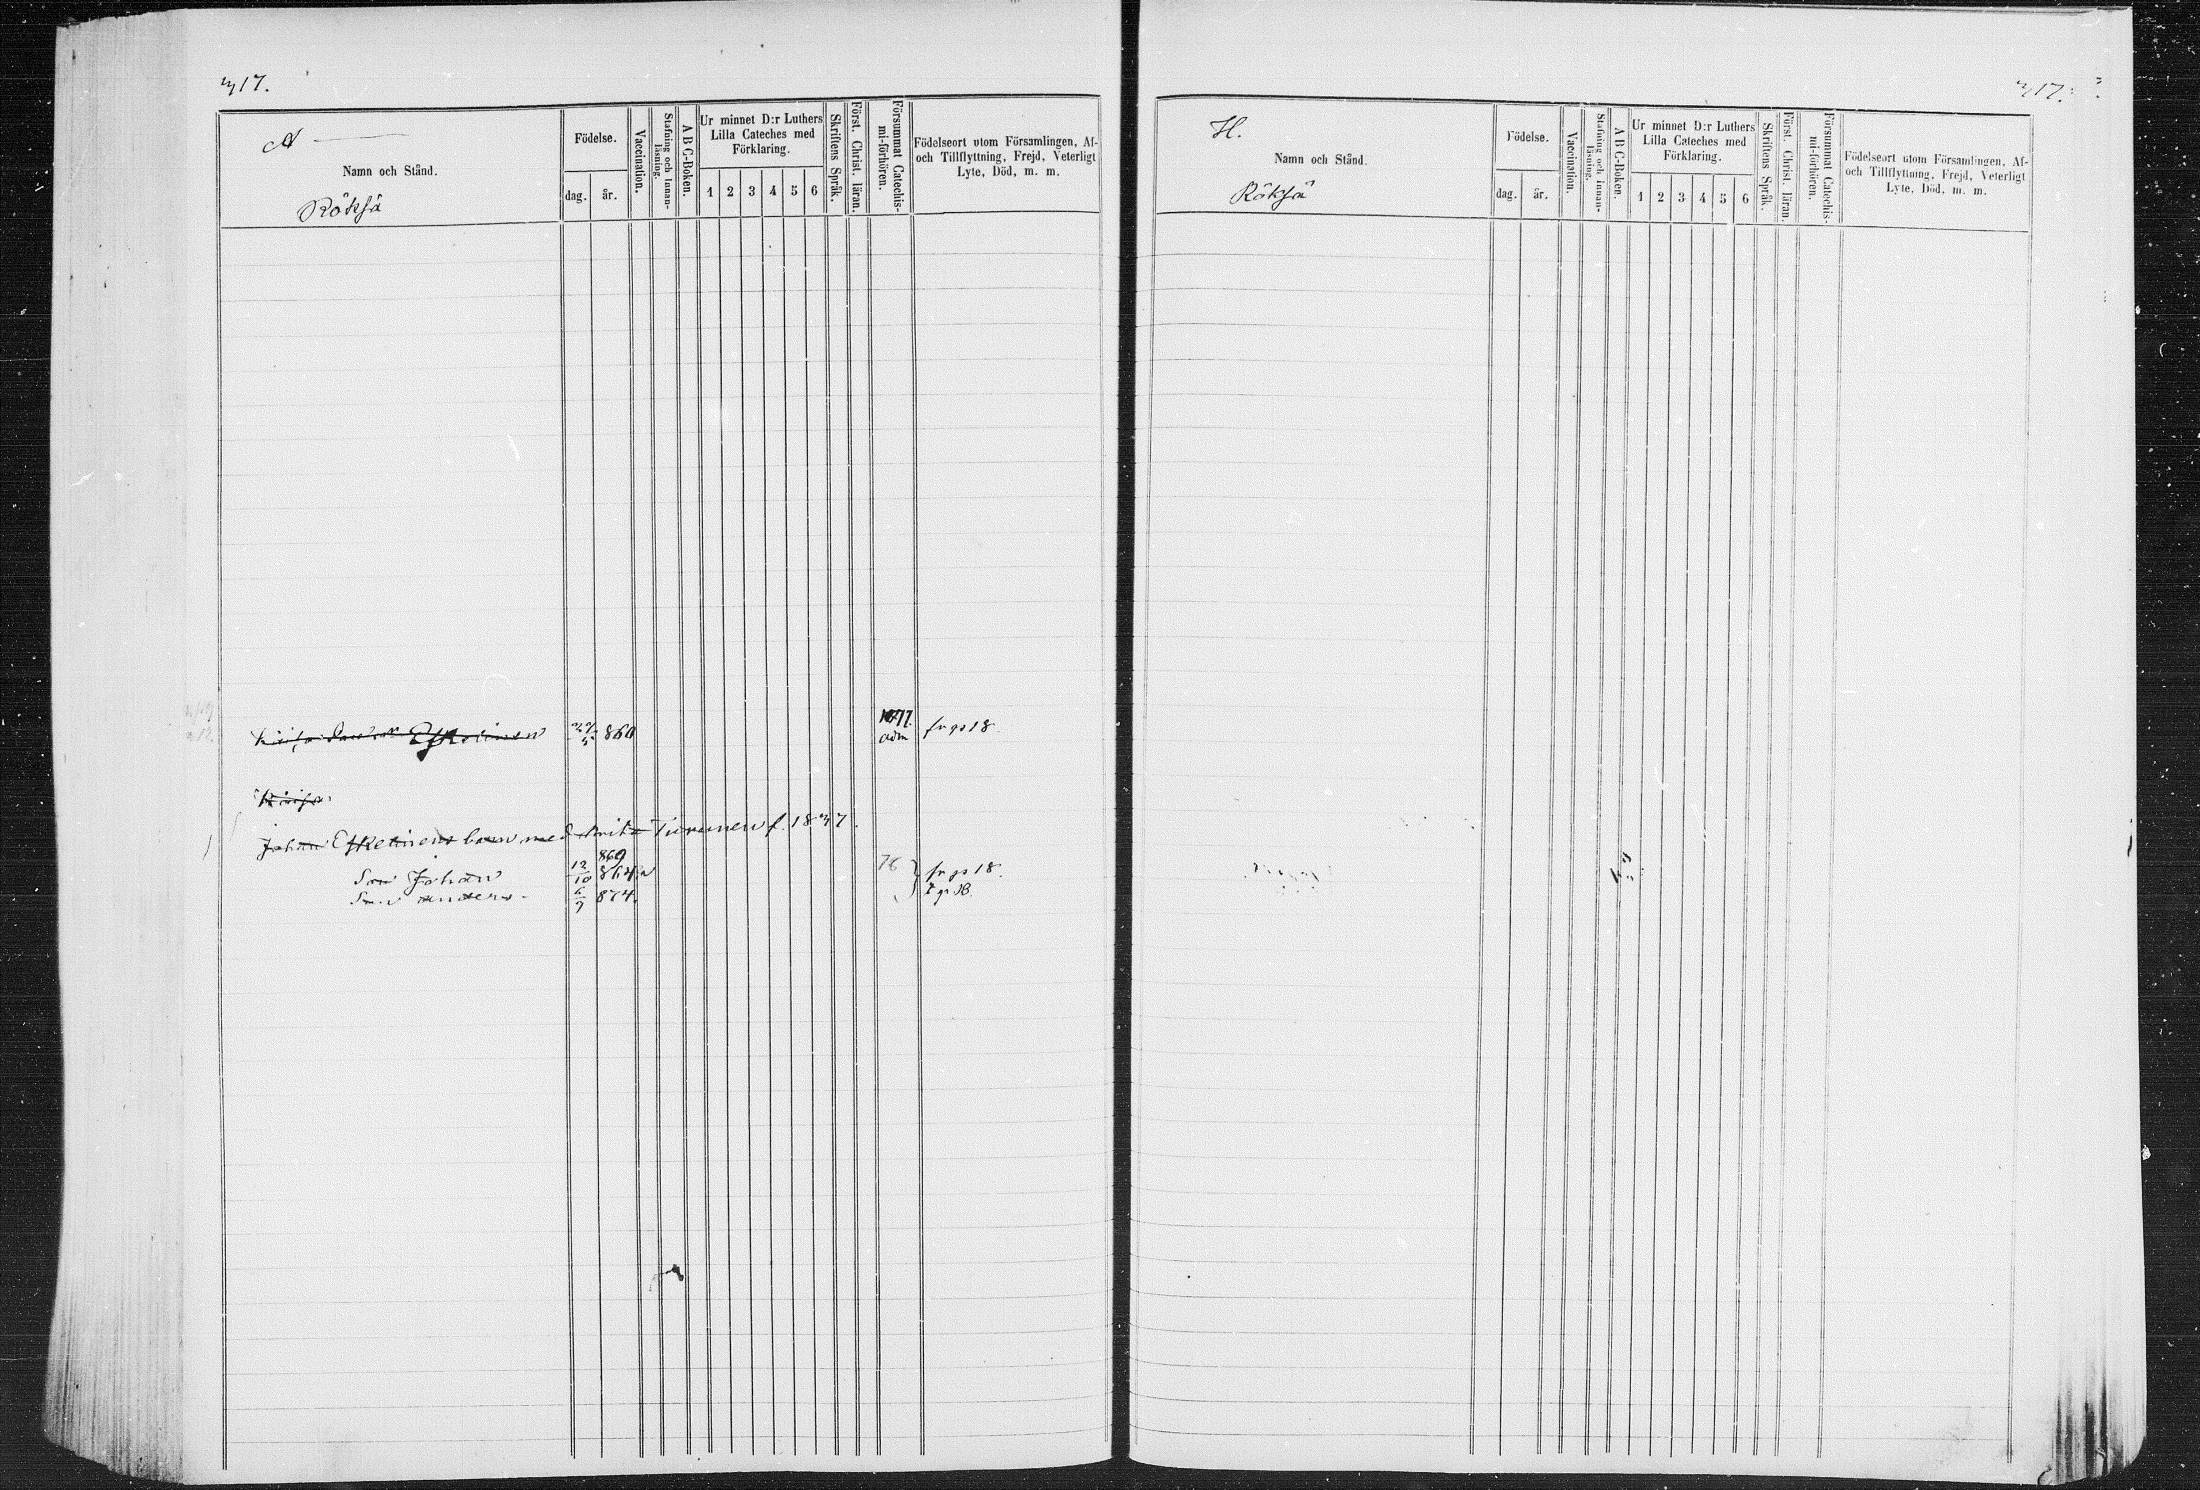 317.
A
Namn och Stånd.
Röksä
Födelse.
dag. år.
Vaccination.
Stafning och Innanläsning.
A B C-Boken.
Ur minnet D:r Luthers
Lilla Cateches med
Förklaring.
1 2 3 4 5 6
Skriftens Språk.
Först. Christ. läran.
Försummat Catechismi-förhören.
Födelseort utom Församlingen, Af-
och Tillflyttning, Frejd, Veterligt
Lyte, Död, m. m.
Eskelinen 860 1877. adm fr ps 18
Johan Eskelinens barn med Brita Turunen f. 1837.
869
Son Johan 12/10 76 fr ps 18.
Son Anders 6/9 874.
317.
H.
Namn och Stånd.
Röksä
Födelse.
dag. år.
Vaccination.
Stafning och Innanläsning.
A B C-Boken.
Ur minnet D:r Luthers
Lilla Cateches med
Förklaring.
1 2 3 4 5 6
Skriftens Språk.
Först. Christ. läran.
Försummat Catechismi-förhören.
Födelseort utom Församlingen, Af-
och Tillflyttning, Frejd, Veterligt
Lyte, Död, m. m.